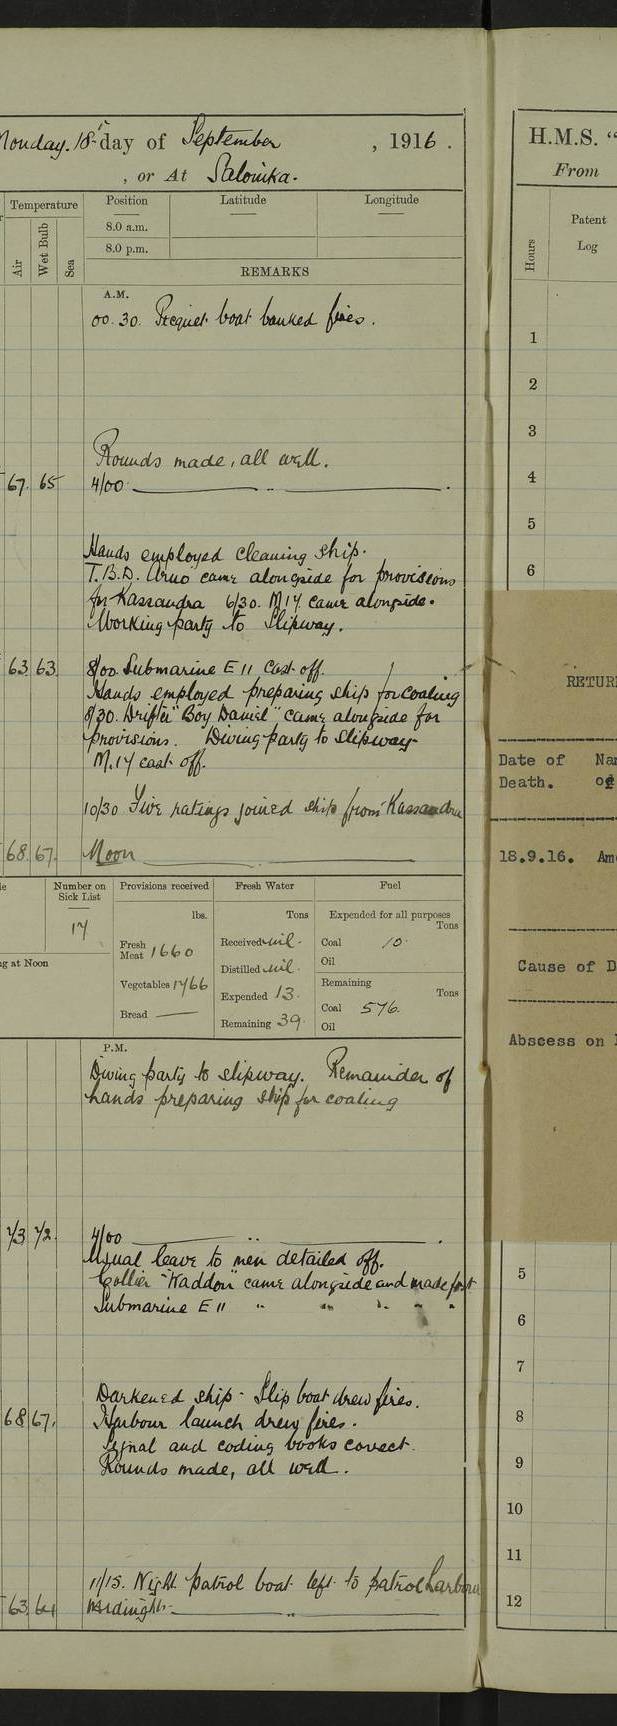 Monday. 18 day of September , 1916 .
, or At Salonika.
Temperature
Position
Latitude
Longitude
Air
Wet Bulb
Sea
8.0 a.m.
8.0 p.m.
REMARKS
A.M.
00.30. Picquet boat banked fires.
Rounds made, all well.
67. 65 4/00
Hands employed cleaning ship.
T.B.D. Arno came alongside for provisions
for Kassandra 6/30. M 17 came alongside.
Working party to Slipway.
63 63 8/00 Submarine E 11 Cast off.
Hands employed preparing ship for coaling
8/30. Drifter "Boy Daniel" came alongside for
provisions. Diving party to Slipway
M.17 cast off.
10/30 Five ratings joined ship from Kassandra
68. 67. Noon
Number on
Sick List
17
ng at Noon
Provisions received
lbs.
Fresh
Meat 1660
Vegetables 1766
Bread —
Fresh Water
Tons
Received nil.
Distilled nil.
Expended 13.
Remaining 39.
Fuel
Expended for all purposes
Tons
Coal 10.
Oil
Remaining
Tons
Coal 576.
Oil
P.M.
Diving party to slipway. Remainder of
hands preparing ship for coaling
73 72. 4/00
Usual leave to men detailed off.
Collier "Haddon" came alongside and made fast
Submarine E 11 " " " " "
Darkened ship - Slip boat drew fires.
68 67. Harbour launch drew fires.
Signal and coding books correct.
Rounds made, all well.
11/15. Night patrol boat left to patrol harbour
63 61 Midnight
H.M.S. "
From
Hours
Patent
Log
1
2
3
4
5
6
RETUR
Date of Na
Death. of
18.9.16. Am
Cause of D
Abscess on
5
6
7
8
9
10
11
12